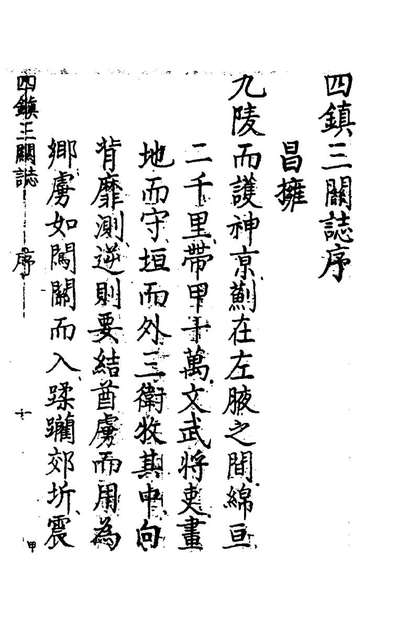 四鎮三關誌序
昌擁
九陵而護神京薊在左腋之間綿亘
二千里帶甲十萬文武將吏畫
地而守垣而外三衛牧其中向
背靡測逆則要結酋虜而用為
鄉虜如闖關而入蹂躪郊圻震
四鎮三關誌
序
十
甲